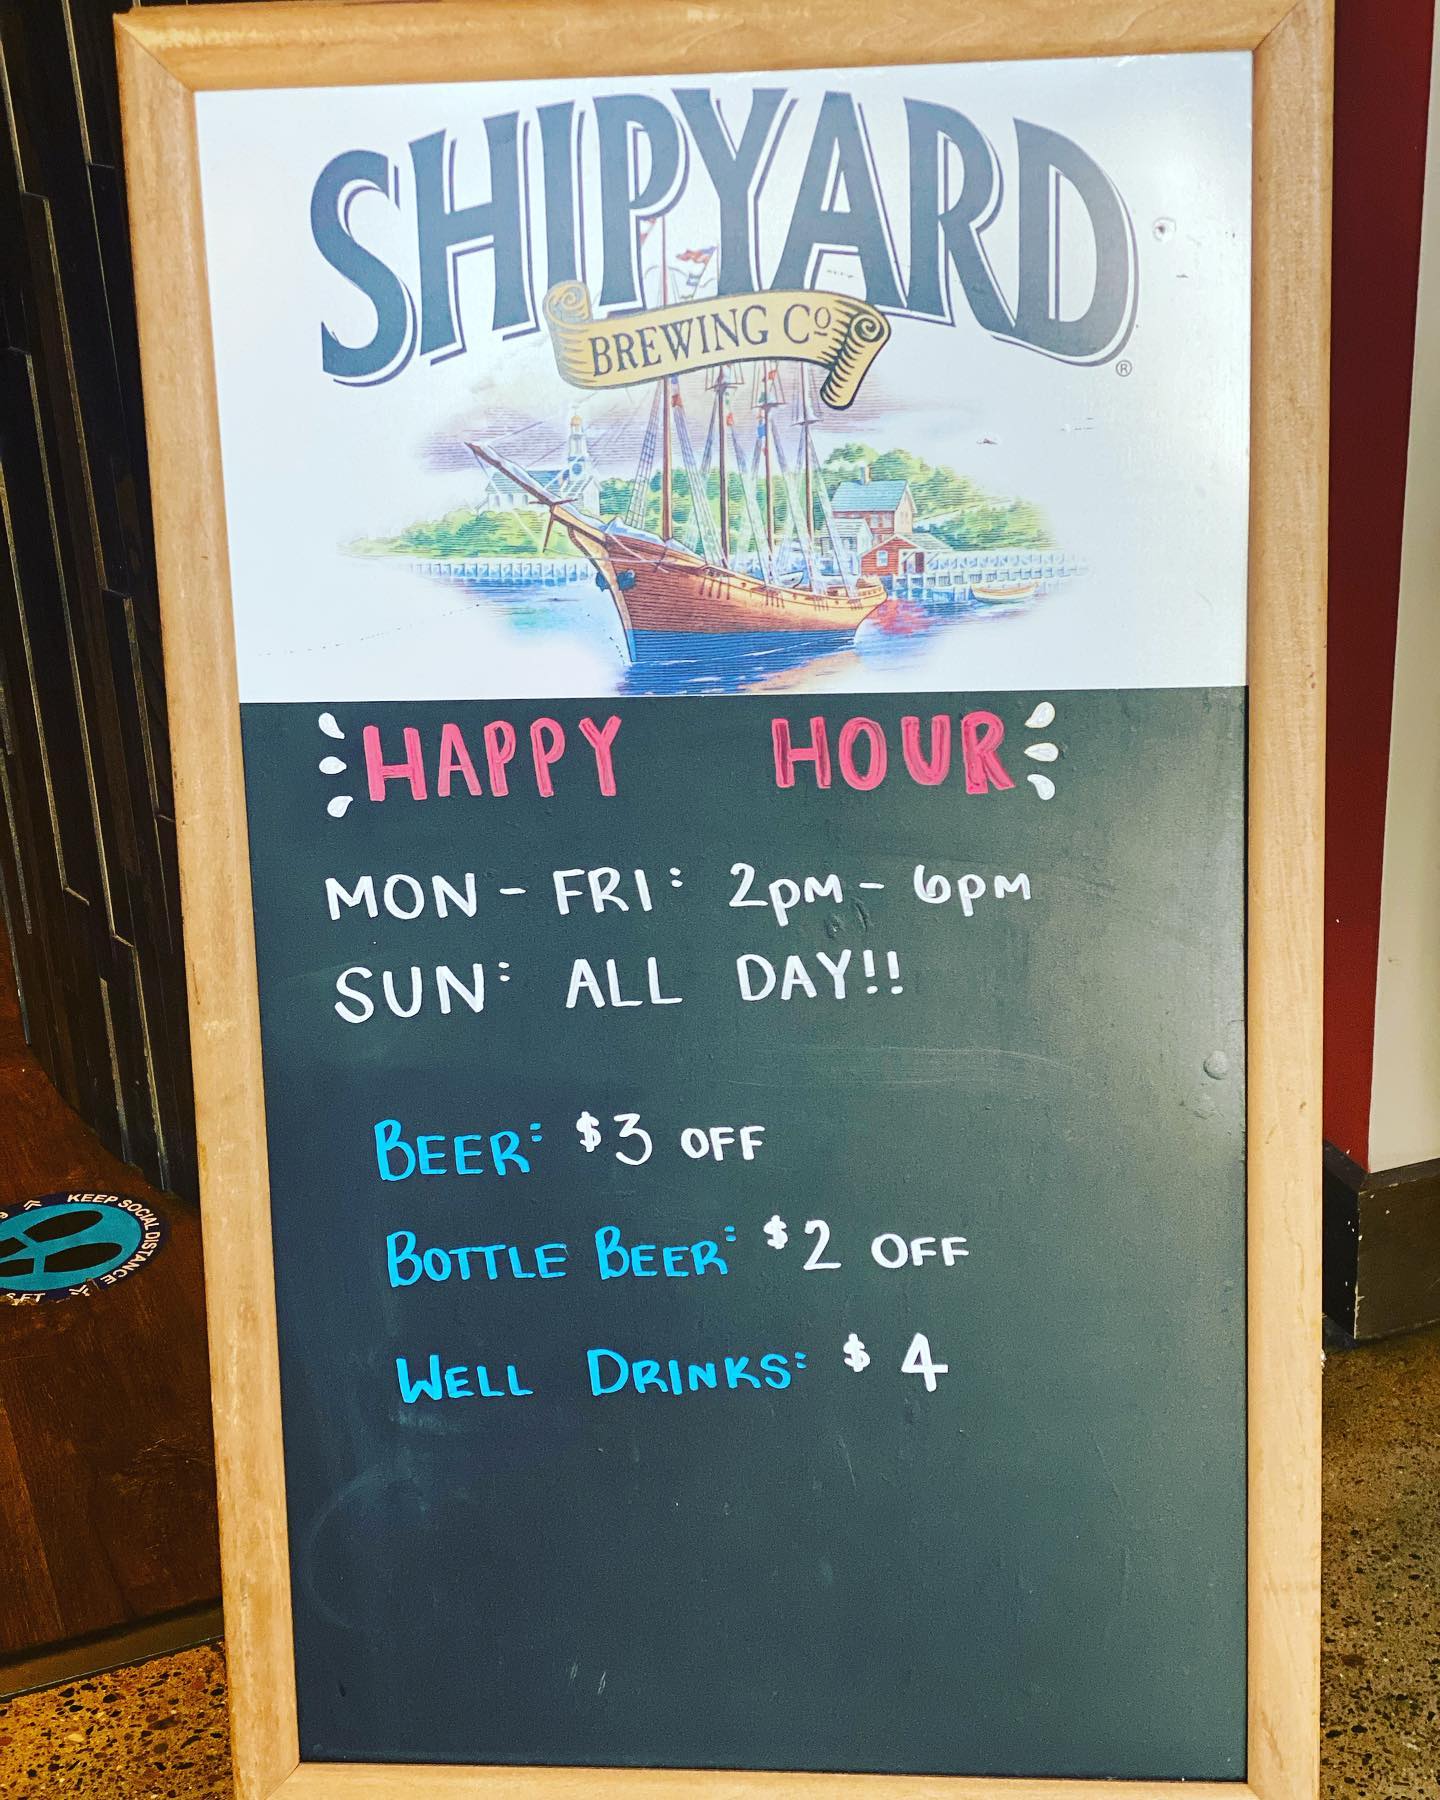 SHIPYARD
BREWING Co
®
HAPPY HOUR
MON - FRI: 2pm - 6pm
SUN: ALL DAY!!
BEER: $3 OFF
BOTTLE BEER: $2 OFF
WELL DRINKS: $4
KEEP SOCIAL DISTANCE
FT